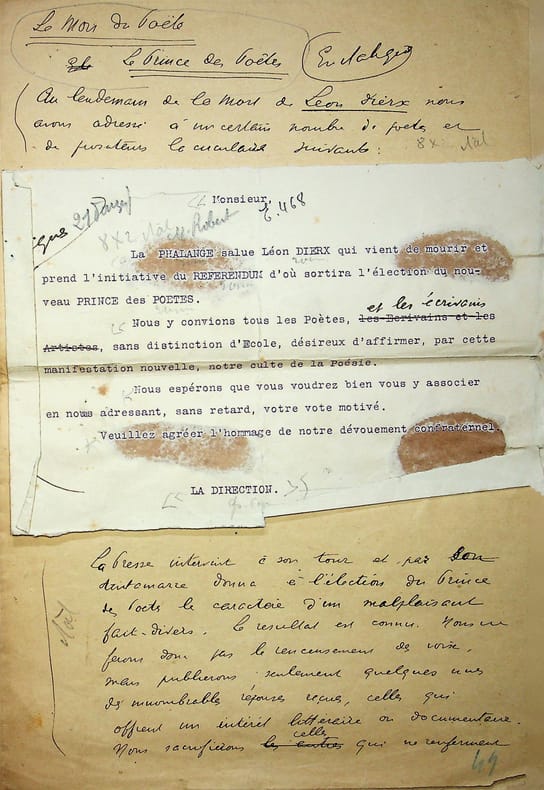 Le Mois du Poète
Le Prince des Poètes
Au lendemain de la mort de Léon Dierx nous
avons adressé à un certain nombre de poètes et
de prosateurs la circulaire suivante :
8 x Nal
Monsieur,
8 x 2 Nal
Robert
La PHALANGE salue Léon DIERX qui vient de mourir et
prend l'initiative du REFERENDUM d'où sortira l'élection du nou-
veau PRINCE des POETES.
et les écrivains
Nous y convions tous les Poètes, les Ecrivains et les
Artistes, sans distinction d'Ecole, désireux d'affirmer, par cette
manifestation nouvelle, notre culte de la Poésie.
Nous espérons que vous voudrez bien vous y associer
en nous adressant, sans retard, votre vote motivé.
Veuillez agréer l'hommage de notre dévouement confraternel.
LA DIRECTION.
La Presse intervint à son tour et par son
tintamarre donna à l'élection du Prince
des Poètes le caractère d'un malplaisant
fait-divers. Le résultat est connu. Nous ne
ferons donc pas le recensement des voix,
mais publierons seulement quelques unes
des innombrables réponses reçues, celles qui
offrent un intérêt littéraire ou documentaire.
celles
Nous sacrifierons les autres qui ne renferment
49